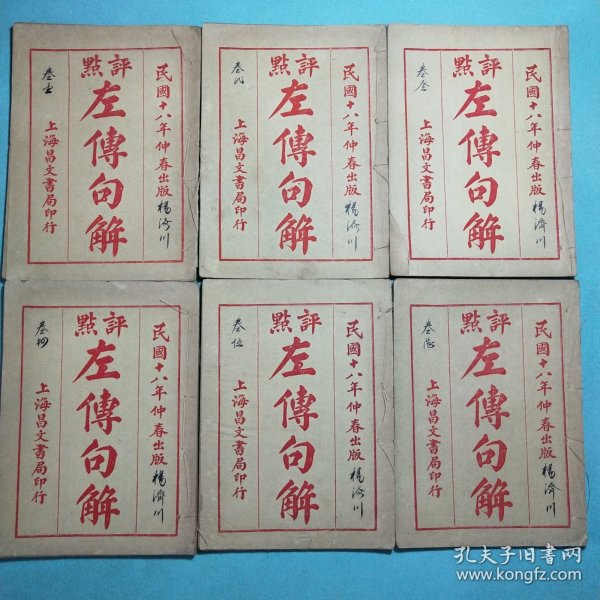 民國十八年仲春出版
楊濟川
評點
左傳句解
上海昌文書局印行
卷壹
民國十八年仲春出版
楊濟川
評點
左傳句解
上海昌文書局印行
民國十八年仲春出版
楊濟川
評點
左傳句解
上海昌文書局印行
卷叁
民國十八年仲春出版
楊濟川
評點
左傳句解
上海昌文書局印行
民國十八年仲春出版
楊濟川
評點
左傳句解
上海昌文書局印行
卷伍
民國十八年仲春出版
楊濟川
評點
左傳句解
上海昌文書局印行
孔夫子旧书网
www.kongfz.com